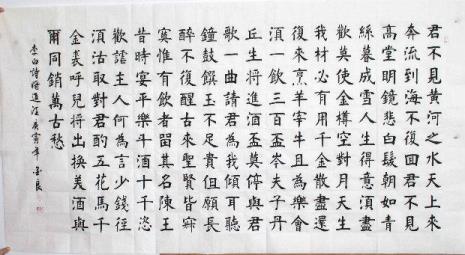 君不見黃河之水天上來
奔流到海不復回君不見
高堂明鏡悲白髮朝如青
絲暮成雪人生得意須盡
歡莫使金樽空對月天生
我材必有用千金散盡還
復來烹羊宰牛且為樂會
須一飲三百盃岑夫子丹
丘生將進酒盃莫停與君
歌一曲請君為我傾耳聽
鐘鼓饌玉不足貴但願長
醉不復醒古來聖賢皆寂
寞惟有飲者留其名陳王
昔時宴平樂斗酒十千恣
歡謔主人何為言少錢徑
須沽取對君酌五花馬千
金裘呼兒將出換美酒與
爾同銷萬古愁
李白詩將進酒庚寅年良